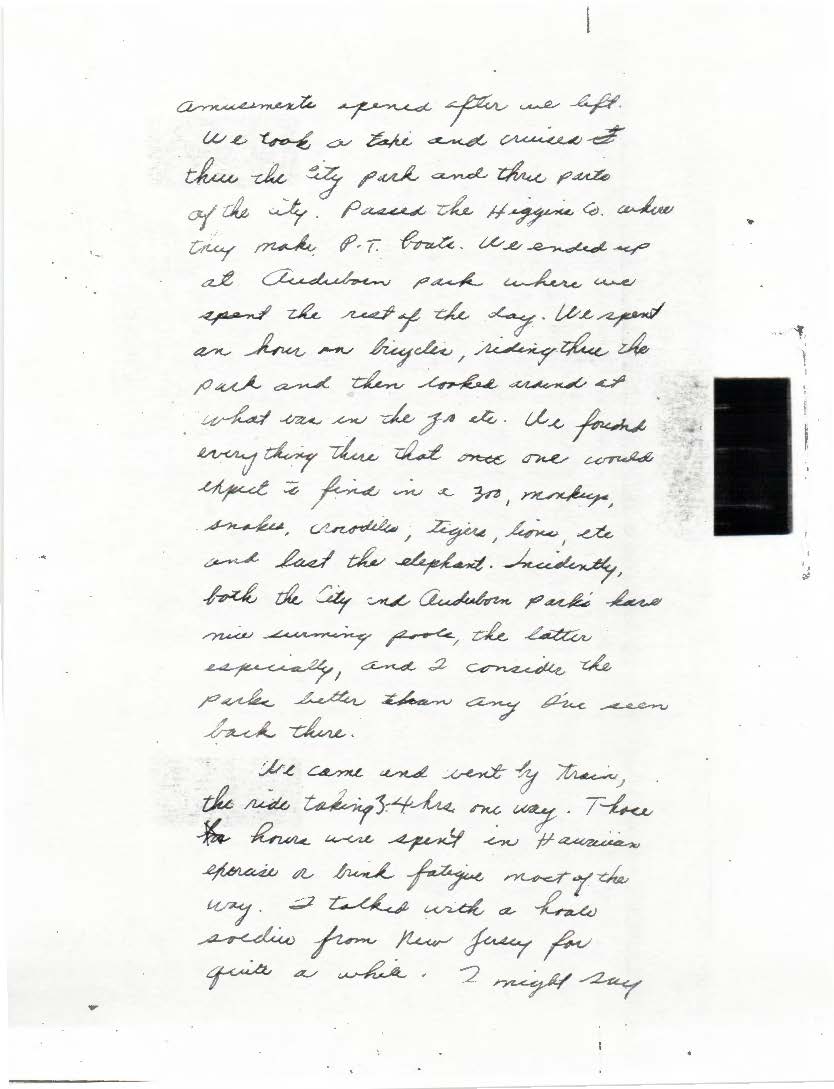 amusements opened after we left.
We took a taxi and cruised
thru the City park and thru parts
of the city. Passed the Higgins Co. where
they make P.T. boats. We ended up
at Auduborn park where we
spent the rest of the day. We spent
an hour on bicycles, riding thru the
park and then looked around at
what was in the zoo etc. We found
everything there that once one would
expect to find in a zoo, monkeys,
snakes, crocodiles, tigers, lions, etc
and last the elephant. Incidently,
both the City and Auduborn parks have
nice swimming pools, the latter
especially, and I consider the
parks better than any I've seen
back there.
We came and went by train,
the ride taking 3-4 hrs. one way. Those
hours were spent in Hawaiian
exercise or bunk fatigue most of the
way. I talked with a haole
soldier from New Jersey for
quite a while. I might say